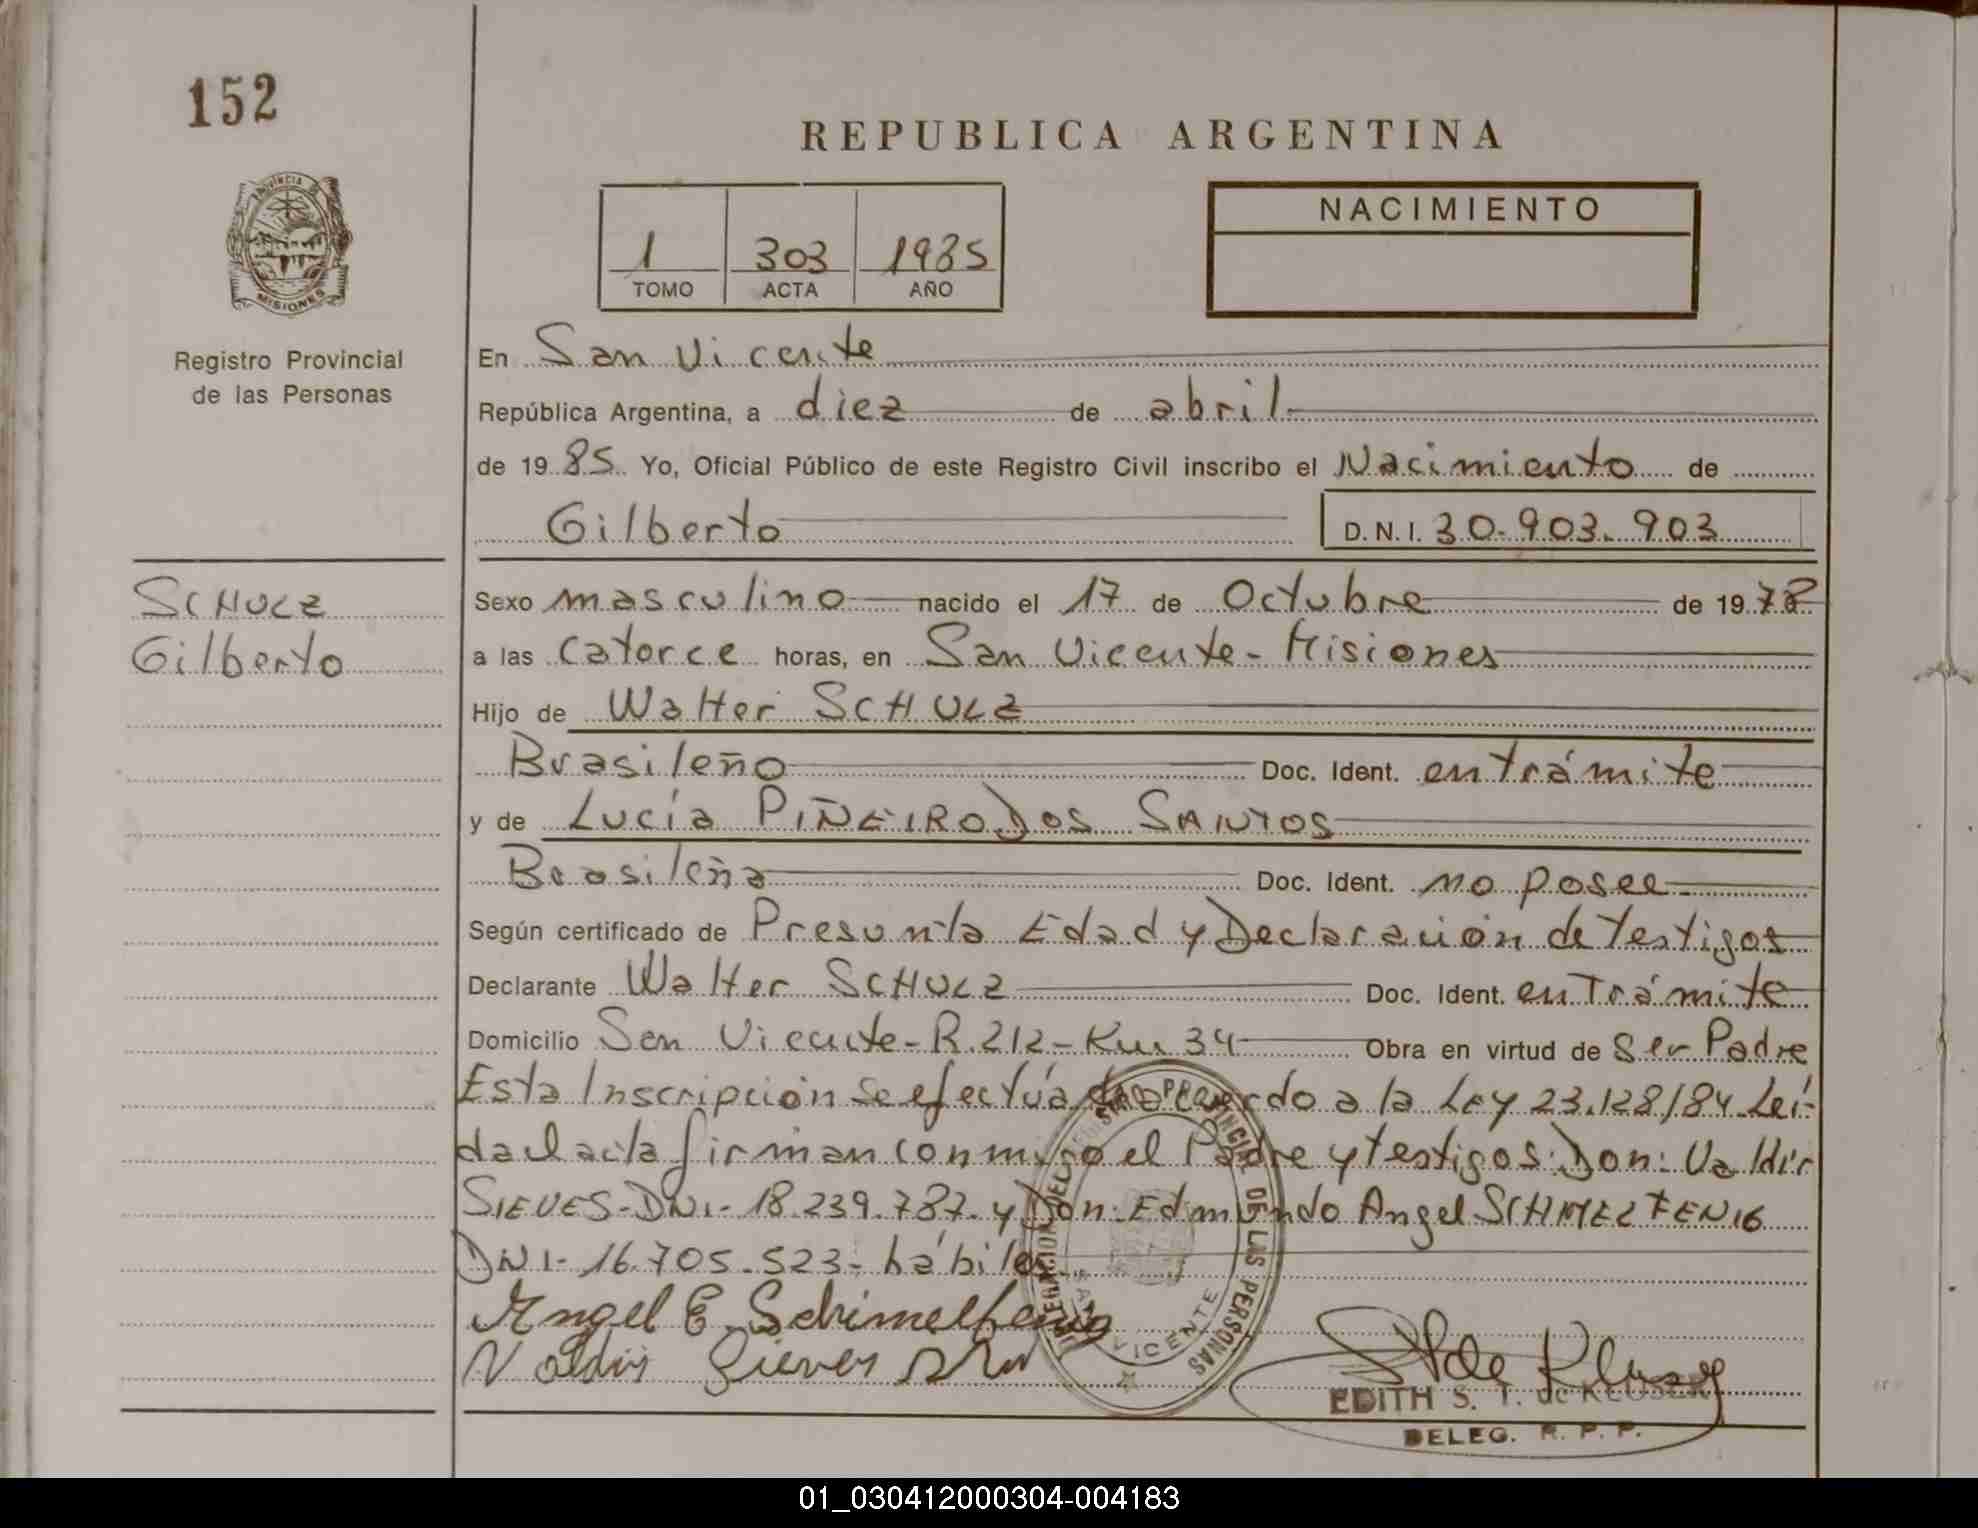 152
REPUBLICA ARGENTINA
PROVINCIA DE
MISIONES
Registro Provincial
de las Personas
1 303 1985
TOMO ACTA AÑO
NACIMIENTO
En San Vicente
República Argentina, a diez de abril
de 19 85 Yo, Oficial Público de este Registro Civil inscribo el Nacimiento de
Gilberto D.N.I. 30.903.903
SCHULZ
Gilberto
Sexo masculino nacido el 17 de Octubre de 1978
a las catorce horas, en San Vicente - Misiones
Hijo de Walter SCHULZ
Brasileño Doc. Ident. en trámite
y de Lucía PIÑEIRO DOS SANTOS
Brasileña Doc. Ident. no posee
Según certificado de Presunta Edad y Declaración de Testigos
Declarante Walter SCHULZ Doc. Ident. en Trámite
Domicilio San Vicente - R. 212 - Km 34 Obra en virtud de Ser Padre
Esta Inscripción se efectúa de acuerdo a la Ley 23.128/84 Leí-
da el acta firman conmigo el Padre y testigos: Don: Valdir
SIEVES - DNI - 18.239.787 - y Don: Edmundo Angel SCHMELFENIG
DNI - 16.705.523 - hábiles
Angel E. Schimelfenig
Valdir Sieves
PROVINCIAL DE LAS PERSONAS
VICENTE
EDITH S. T. de KLUSER
DELEG. R. P. P.
01_030412000304-004183